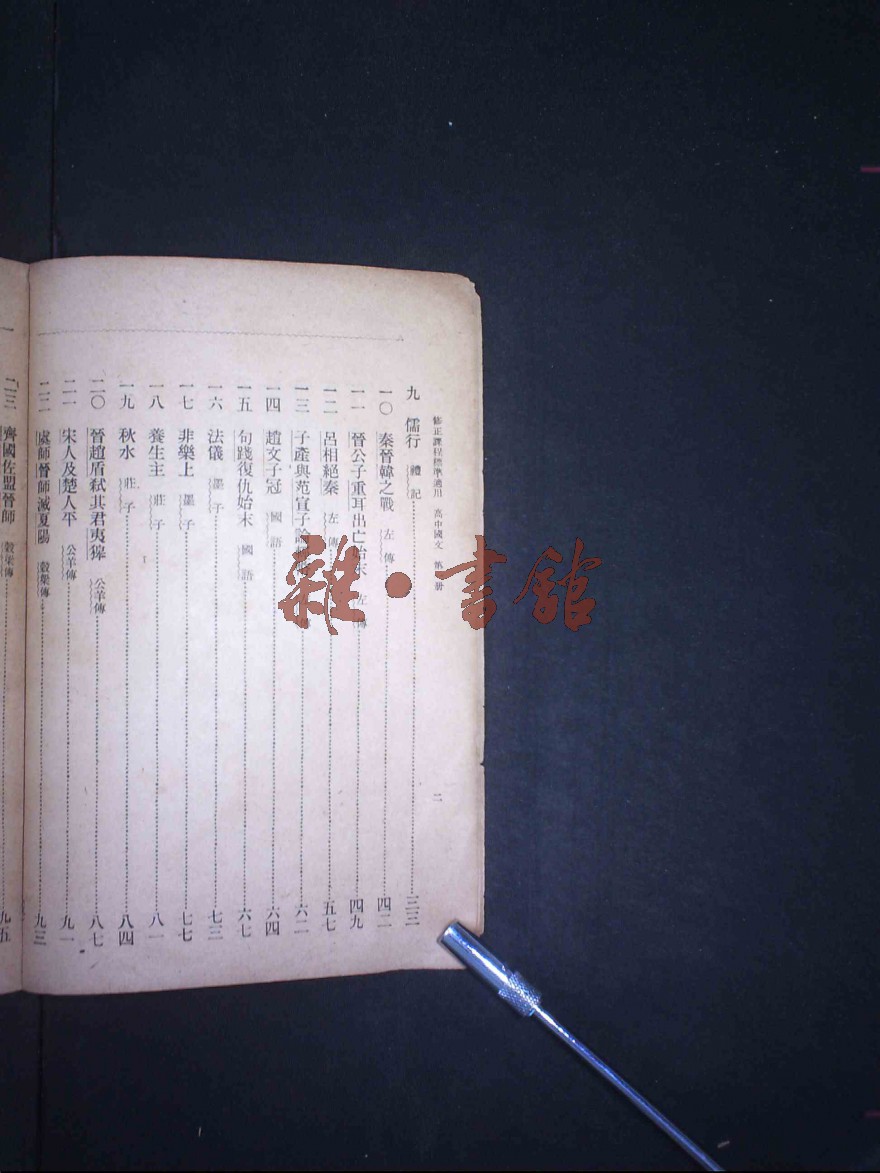 修正課程標準適用 高中國文 第 冊 二
九 儒行 禮記 三三
一〇 秦晉韓之戰 左傳 四二
一一 晉公子重耳出亡始末 左傳 四九
一二 呂相絕秦 左傳 五七
一三 子產與范宣子論 六二
一四 趙文子冠 國語 六四
一五 句踐復仇始末 國語 六七
一六 法儀 墨子 七三
一七 非樂上 墨子 七七
一八 養生主 莊子 八一
一九 秋水 莊子 八四
二〇 晉趙盾弑其君夷獋 公羊傳 八七
二一 宋人及楚人平 公羊傳 九一
二二 虞師晉師滅夏陽 穀梁傳 九三
二三 齊國佐盟晉師 穀梁傳 九五
雜·書館